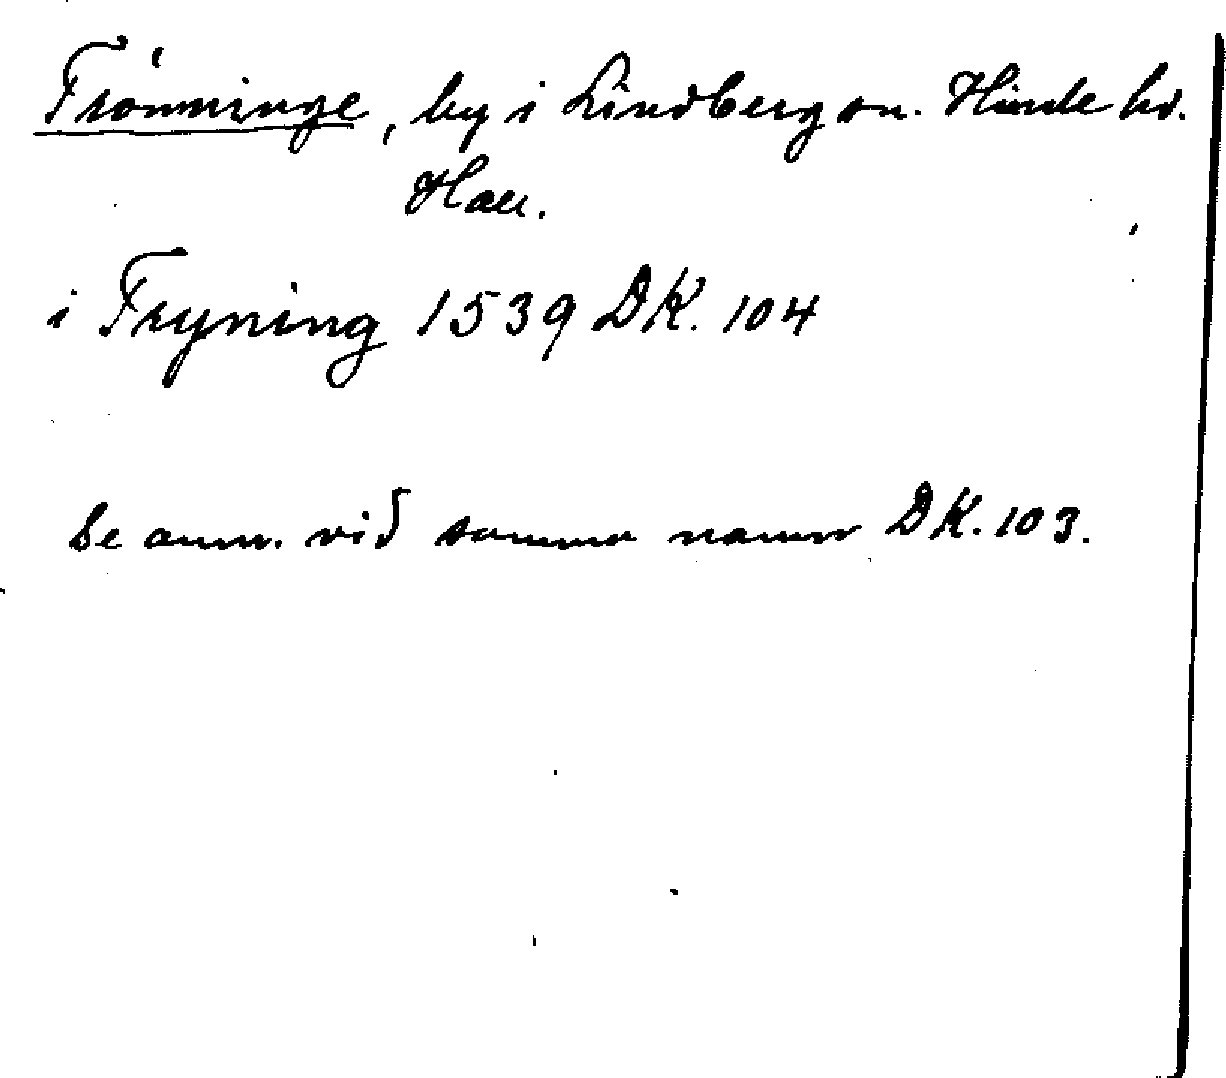 Trönninge, by i Lindberg sn. Himle hd.
Hall.
i Tryning 1539 DK. 104
Se anm. vid samma namn DK. 103.